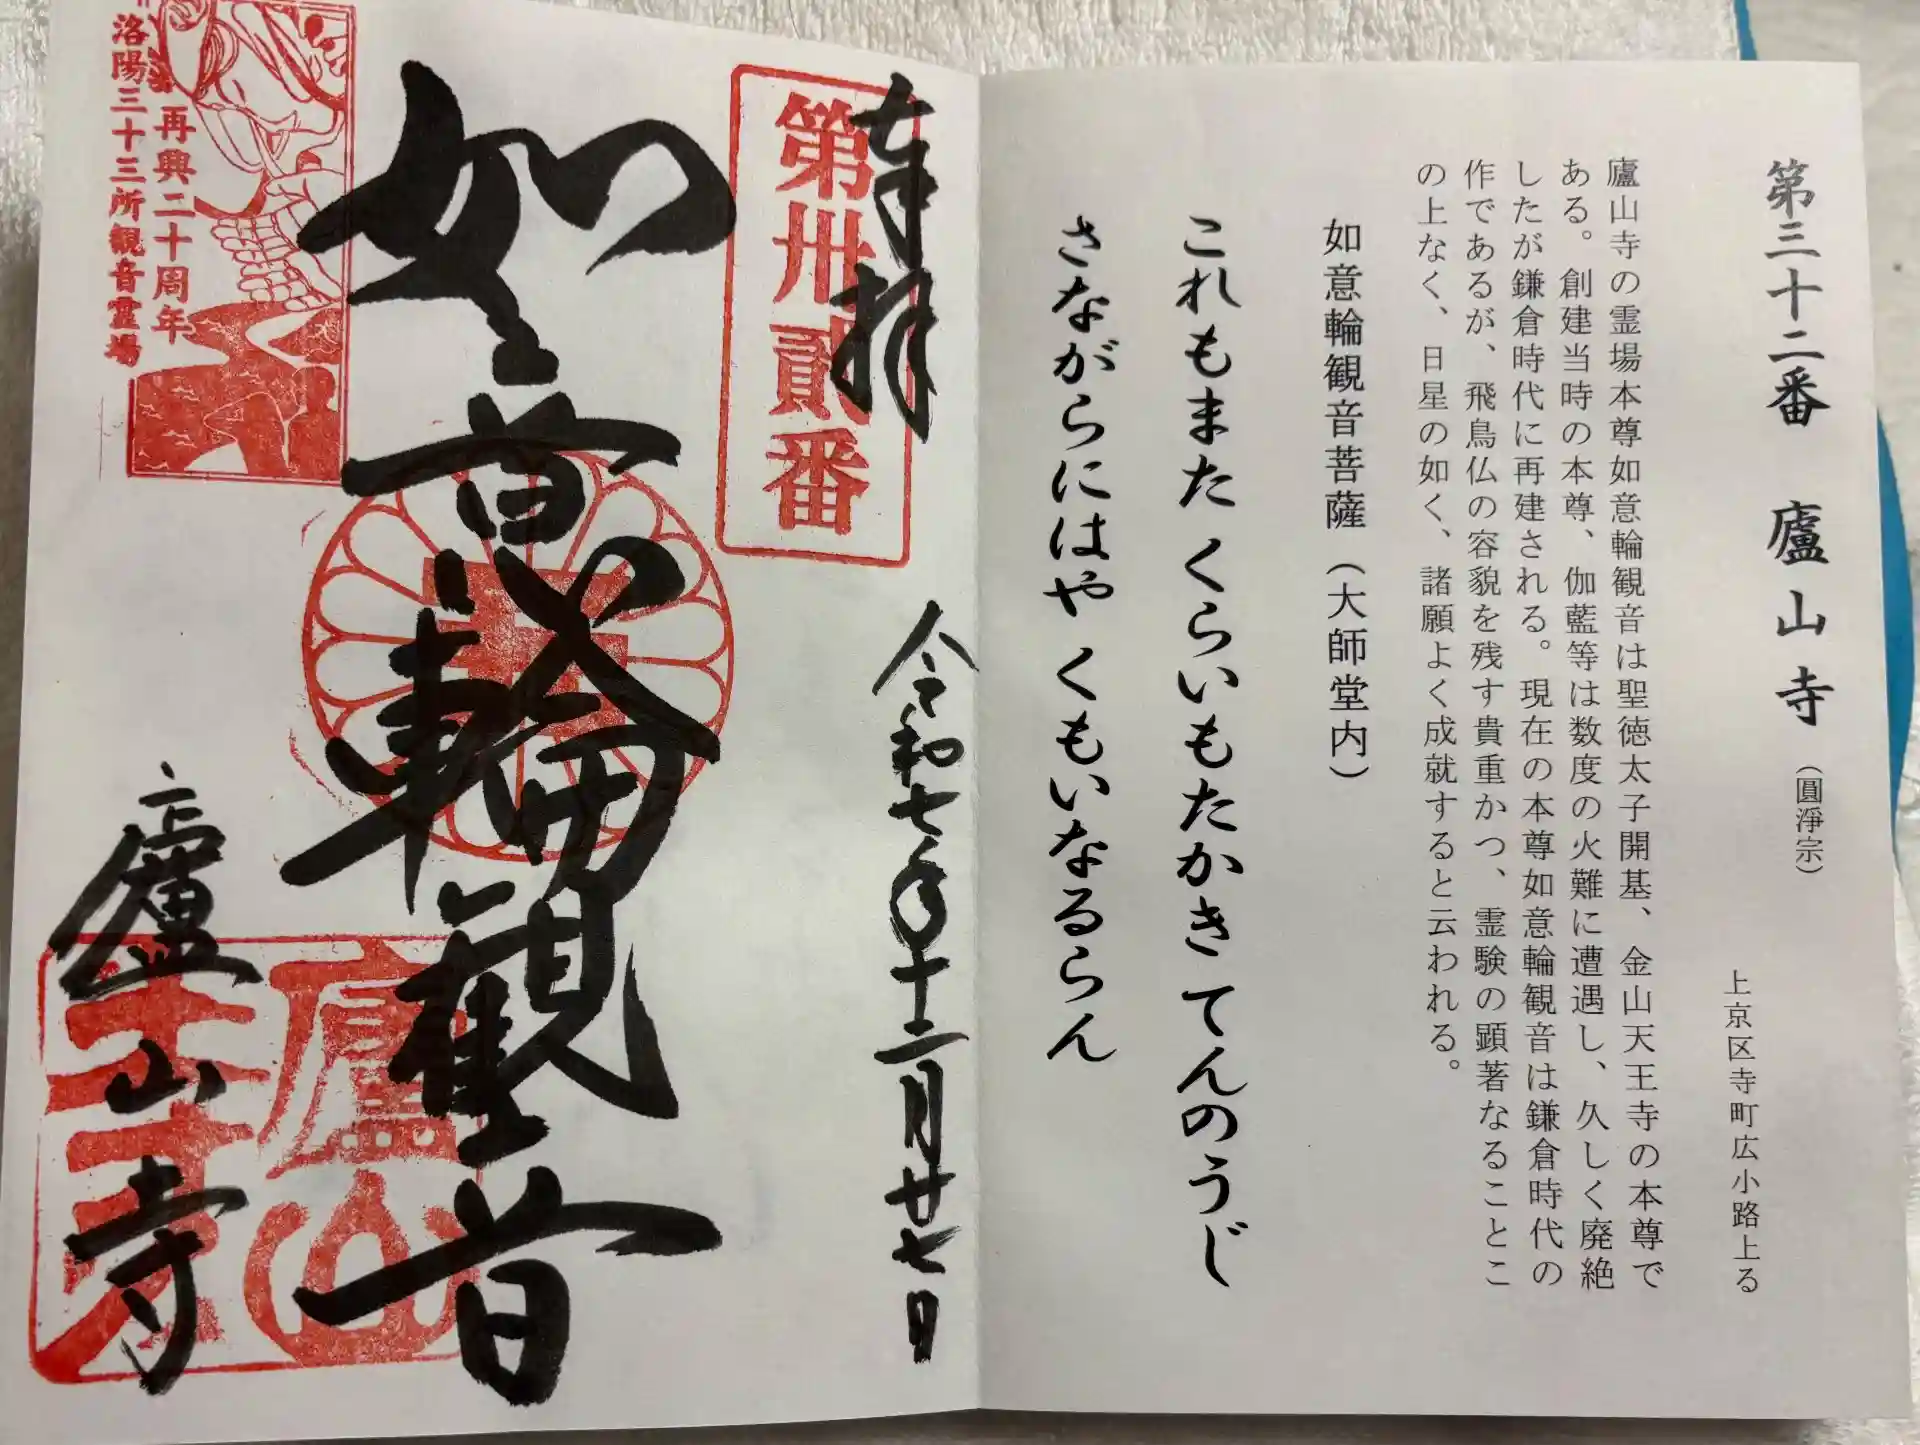 第三十二番 廬山寺(圓淨宗)
上京区寺町広小路上る
廬山寺の霊場本尊如意輪観音は聖徳太子開基、金山天王寺の本尊で
ある。創建当時の本尊、伽藍等は数度の火難に遭遇し、久しく廃絶
したが鎌倉時代に再建される。現在の本尊如意輪観音は鎌倉時代の
作であるが、飛鳥仏の容貌を残す貴重かつ、霊験の顕著なることこ
の上なく、日星の如く、諸願よく成就すると云われる。
如意輪観音菩薩(大師堂内)
これもまた くらいもたかき てんのうじ
さながらにはや くもいなるらん
奉拝
第卅貳番
令和七年十二月廿七日
如意輪観音
廬山寺
廬山寺
再興二十周年
洛陽三十三所観音霊場